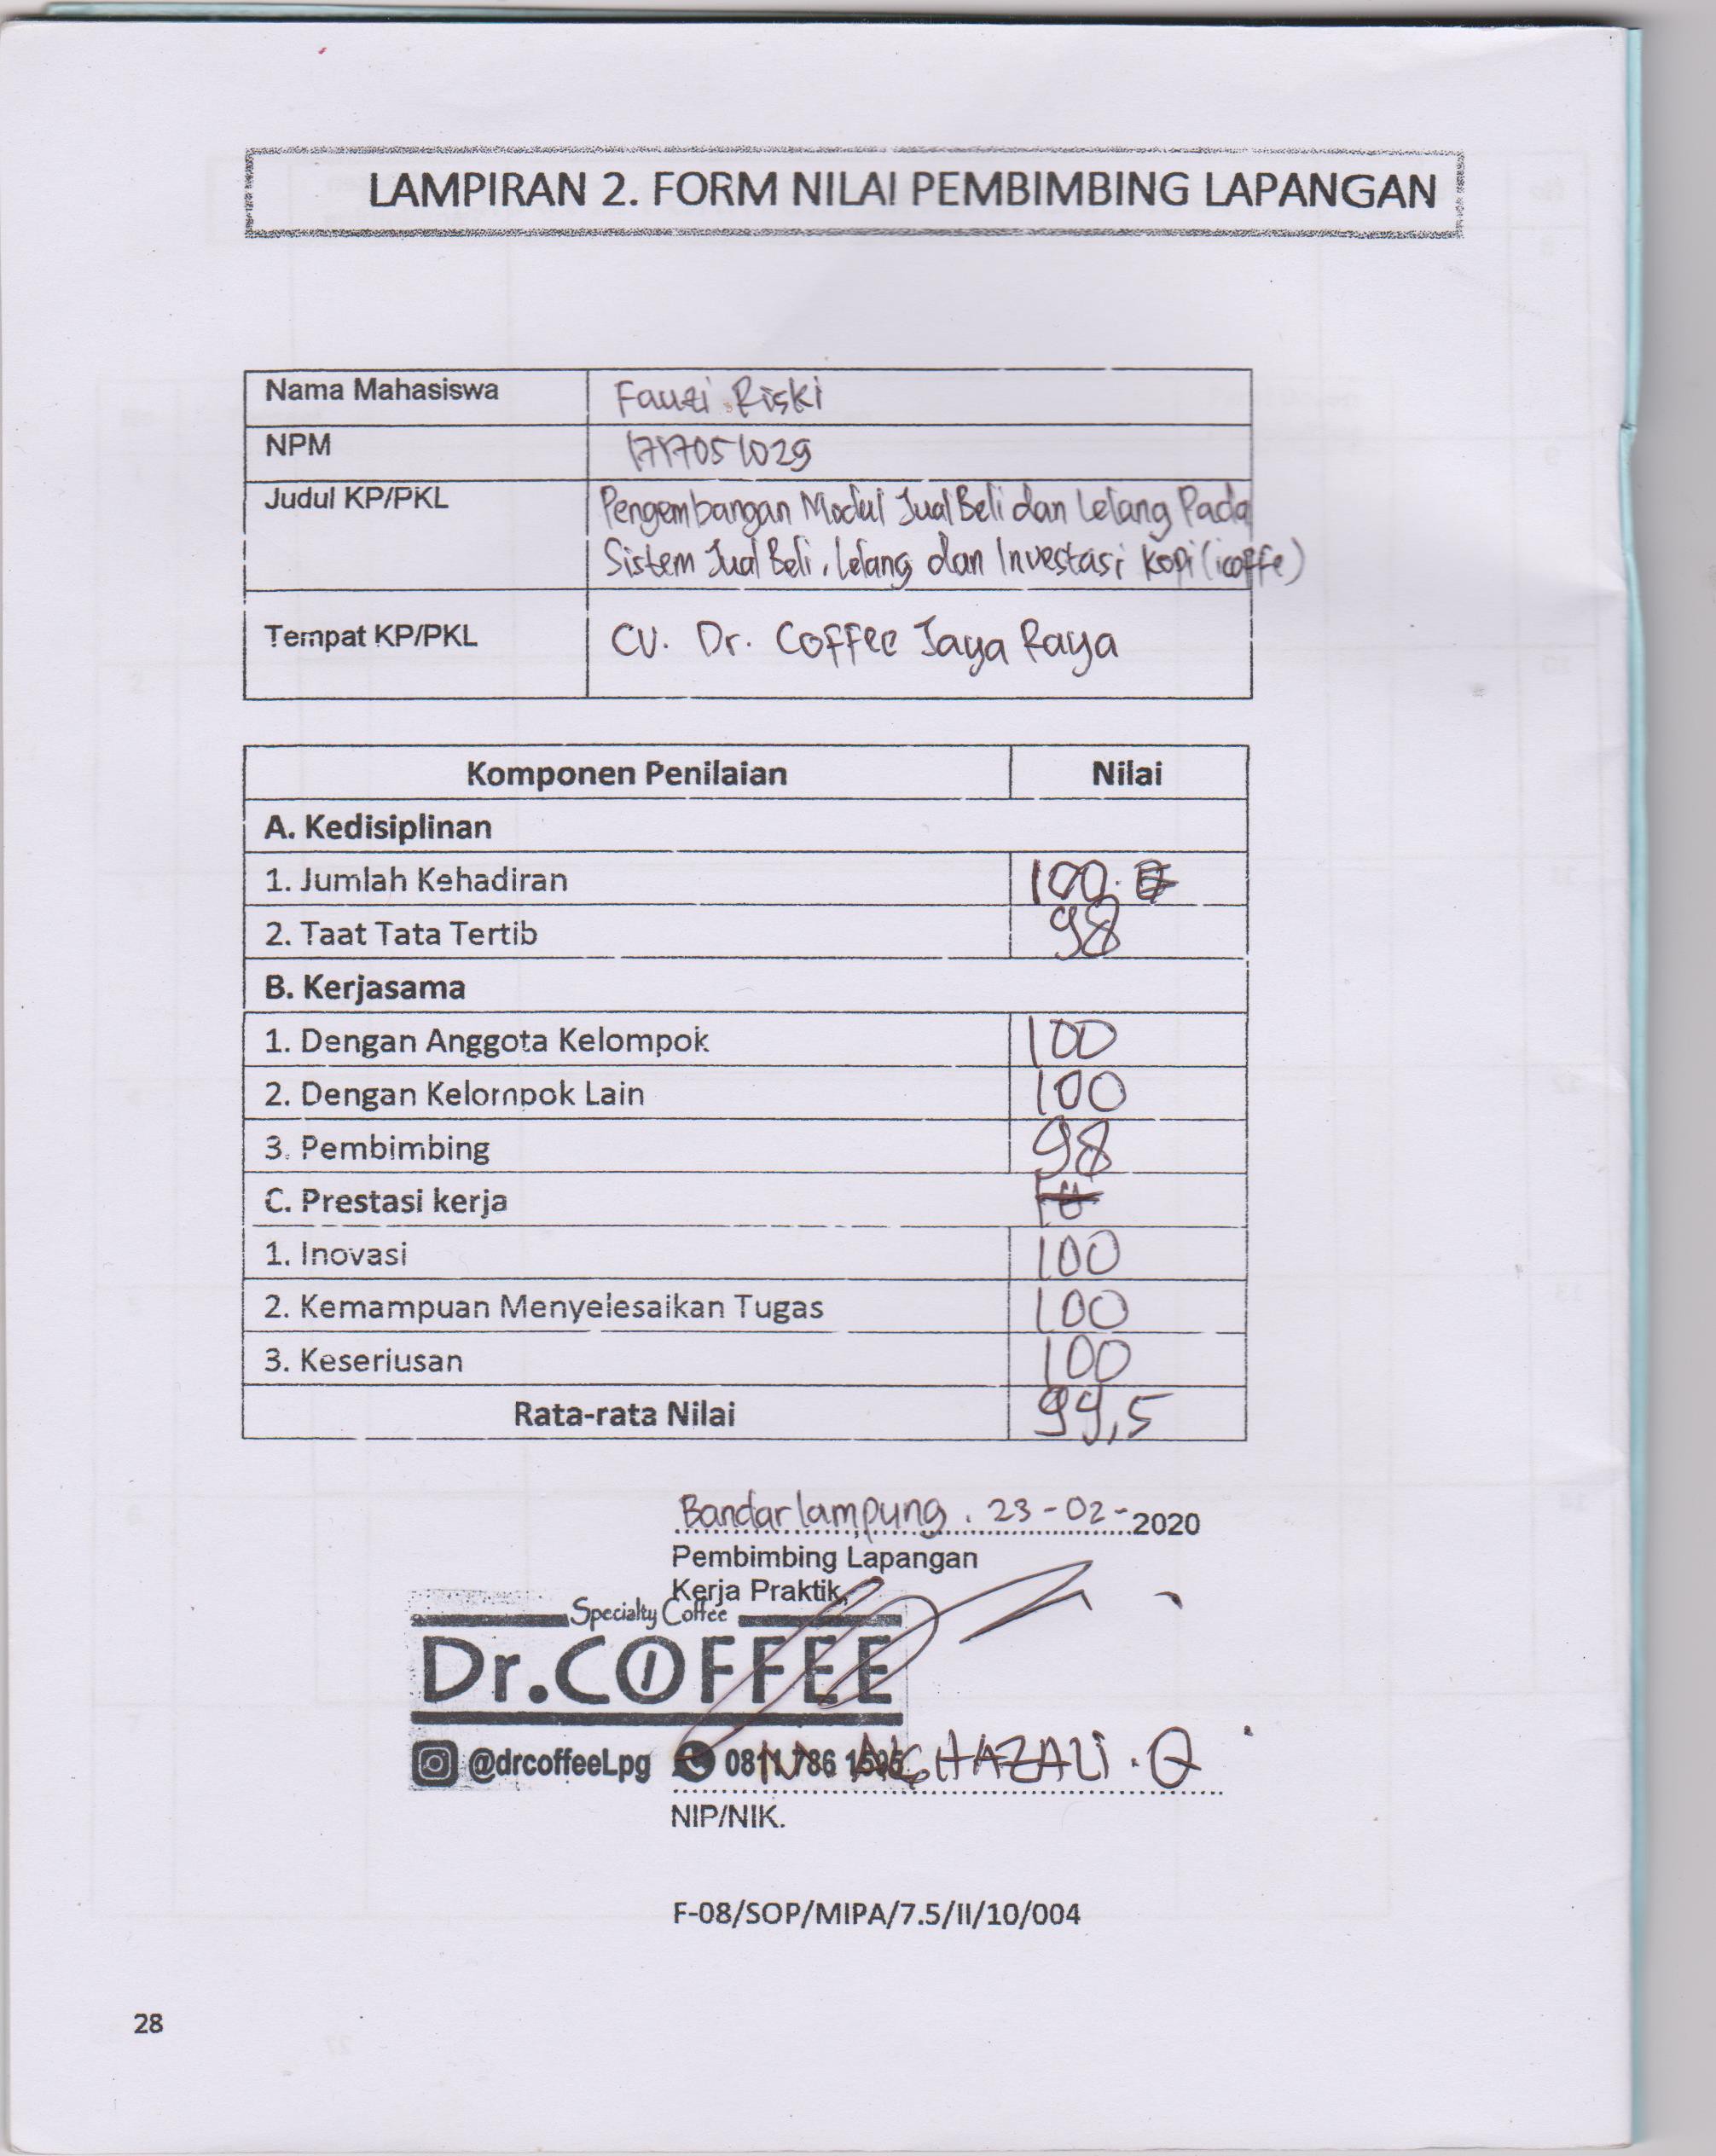 LAMPIRAN 2. FORM NILAI PEMBIMBING LAPANGAN
Nama Mahasiswa Fauzi Riski
NPM 1717051029
Judul KP/PKL Pengembangan Modul Jual Beli dan Lelang Pada
Sistem Jual Beli, Lelang dan Investasi Kopi (icoffe)
Tempat KP/PKL CV. Dr. Coffee Jaya Raya
Komponen Penilaian Nilai
A. Kedisiplinan
1. Jumlah Kehadiran 100.
2. Taat Tata Tertib 98
B. Kerjasama
1. Dengan Anggota Kelompok 100
2. Dengan Kelompok Lain 100
3. Pembimbing 98
C. Prestasi kerja
1. Inovasi 100
2. Kemampuan Menyelesaikan Tugas 100
3. Keseriusan 100
Rata-rata Nilai 99,5
Bandar lampung, 23-02-2020
Pembimbing Lapangan
Kerja Praktik,
Specialty Coffee
Dr.COFFEE
@drcoffeeLpg 0811 786 ALGHAZALI.Q
NIP/NIK.
F-08/SOP/MIPA/7.5/II/10/004
28